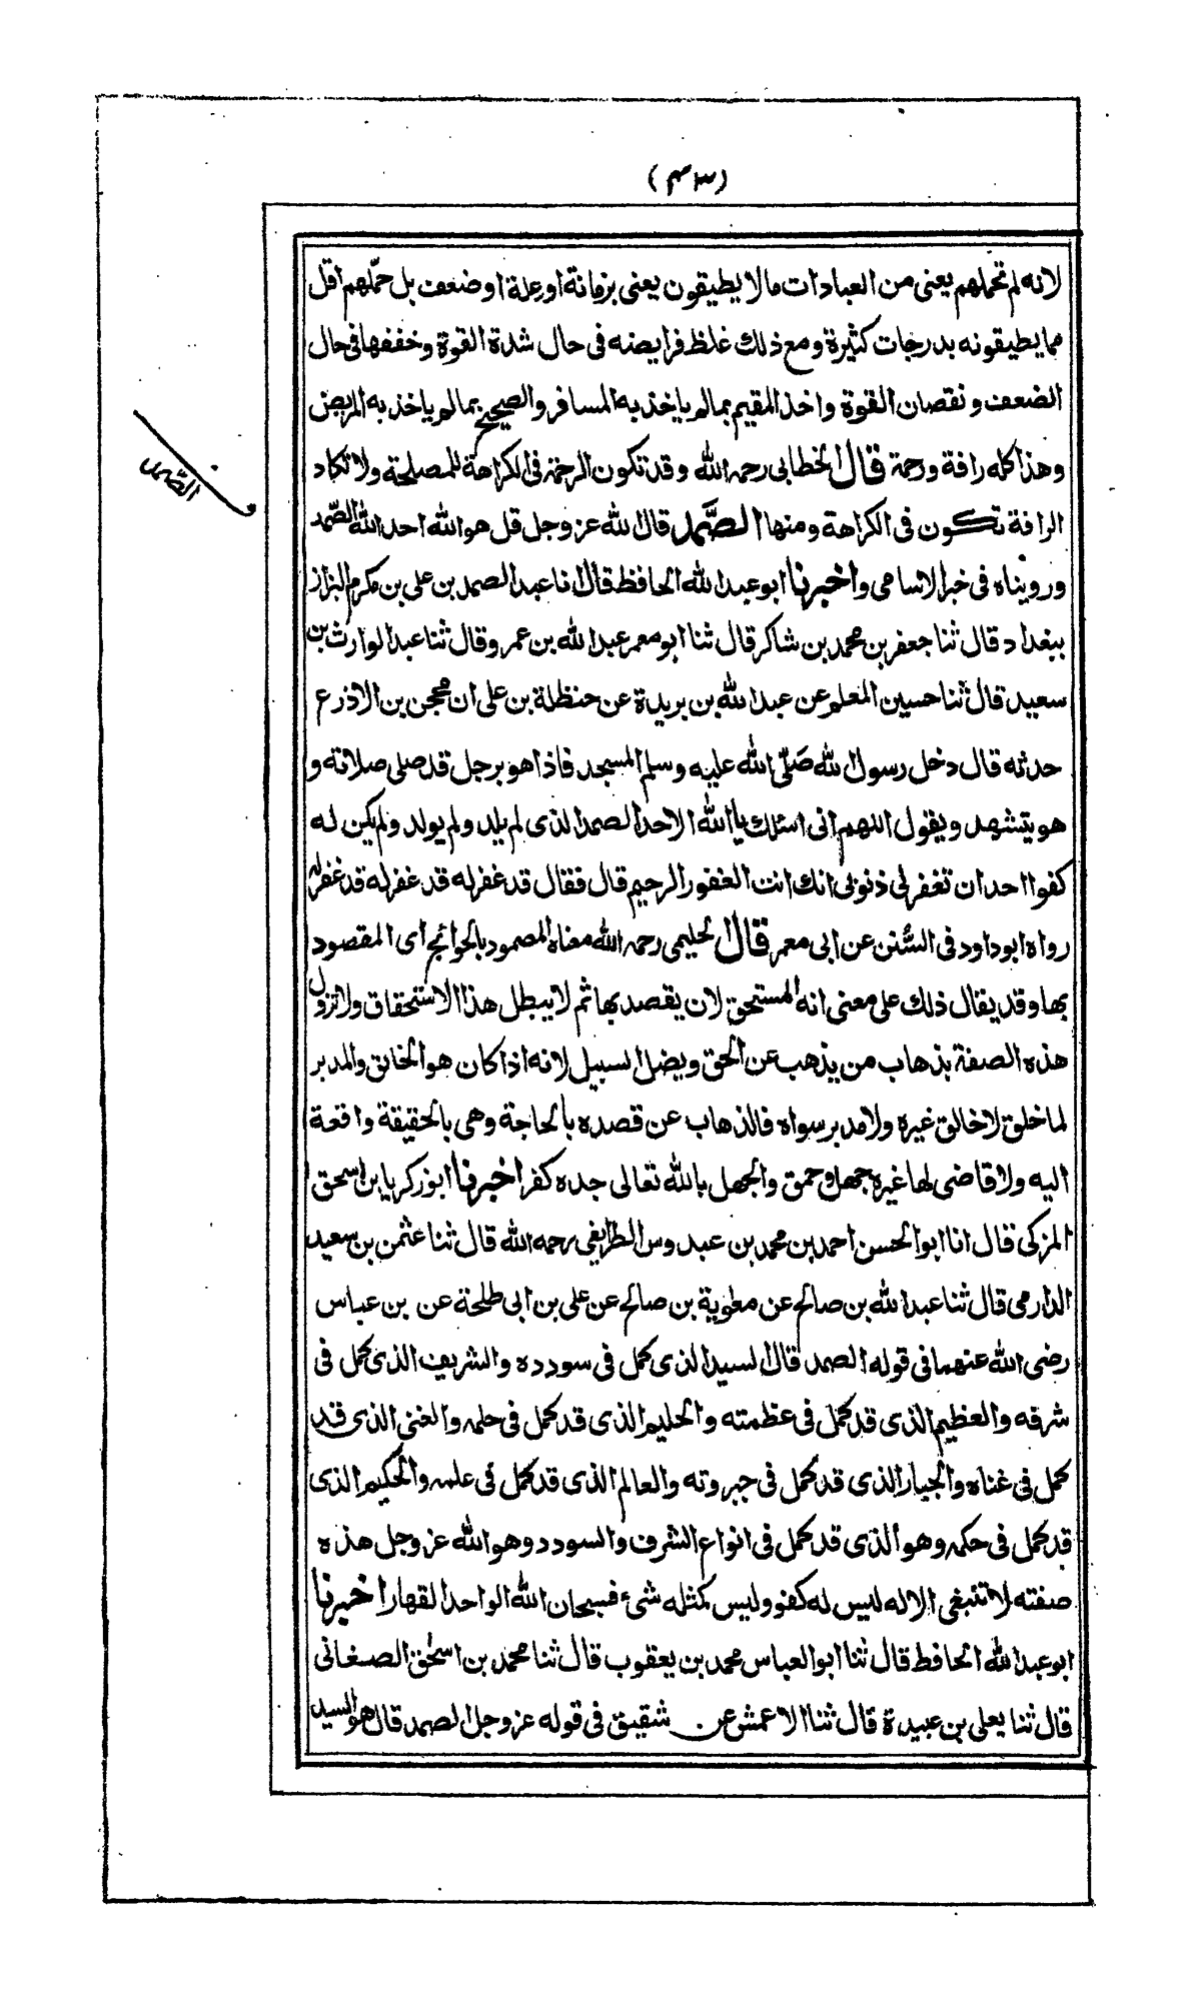 (٤٣)
لانه لم تحملهم يعنى من العبادات مالا يطيقون يعنى بزمانة او علة او ضعف بل حمّلهم اقل
مما يطيقونه بدرجات كثيرة ومع ذلك غلظ فرايضه فى حال شدة القوة وخففها فى حال
الضعف ونقصان القوة واخذ المقيم بمالم ياخذ به المسافر والصحيح بمالم ياخذ به المريض
وهذا كله رافة ورحمة قال الخطابى رحمه الله وقد تكون الرحمة فى الكراهة للمصلحة ولا تكاد
الرافة تكون فى الكراهة ومنها الصَّمد قال الله عز وجل قل هو الله احد الله الصّمد
ورويناه فى خبر الاسامى واخبرنا ابو عبد الله الحافظ قال انا عبد الصمد بن على بن مكرم البزاز
ببغداد قال ثنا جعفر بن محمد بن شاكر قال ثنا ابو معمر عبد الله بن عمر وقال ثنا عبد الوارث بن
سعيد قال ثنا حسين المعلم عن عبد الله بن بريدة عن حنظلة بن على ان محجن بن الاذرع
حدثه قال دخل رسول الله صَلّى الله عليه وسلم المسجد فاذا هو برجل قد صلى صلاته و
هو يتشهد ويقول اللهم انى اسئلك يا الله الاحد الصمد الذى لم يلد ولم يولد ولم يكن له
كفوا احد ان تغفر لى ذنوبى انك انت الغفور الرحيم قال فقال قد غفر له قد غفر له قد غفر له
رواه ابو داود فى السُّنن عن ابى معمر قال الحليمى رحمه الله معناه المصمود بالحوائج اى المقصود
بها وقد يقال ذلك على معنى انه المستحق لان يقصد بها ثم لا يبطل هذا الاستحقاق ولا تزول
هذه الصفة بذهاب من يذهب عن الحق ويضل السبيل لانه اذا كان هو الخالق والمدبر
لما خلق لا خالق غيره ولا مدبر سواه فالذهاب عن قصده بالحاجة وهى بالحقيقة واقعة
اليه ولا قاضى لها غيره جهل وحمق والجهل بالله تعالى جده كفر اخبرنا ابو زكريا بن اسحق
المزكى قال انا ابو الحسن احمد بن محمد بن عبدوس الطرايفى رحمه الله قال ثنا عثمن بن سعيد
الدارمى قال ثنا عبد الله بن صالح عن معاوية بن صالح عن على بن ابى طلحة عن بن عباس
رضى الله عنهما فى قوله الصمد قال السيد الذى كمل فى سودده والشريف الذى كمل فى
شرفه والعظيم الذى قد كمل فى عظمته والحليم الذى قد كمل فى حلمه والغنى الذى قد
كمل فى غناه والجبار الذى قد كمل فى جبروته والعالم الذى قد كمل فى علمه والحكيم الذى
قد كمل فى حكمه وهو الذى قد كمل فى انواع الشرف والسودد وهو الله عز وجل هذه
صفته لا تنبغى الا له ليس له كفو وليس كمثله شىء فسبحان الله الواحد القهار اخبرنا
ابو عبد الله الحافظ قال ثنا ابو العباس محمد بن يعقوب قال ثنا محمد بن اسحٰق الصغانى
قال ثنا يعلى بن عبيدة قال ثنا الاعمش عن شقيق فى قوله عز وجل الصمد قال هو السيد